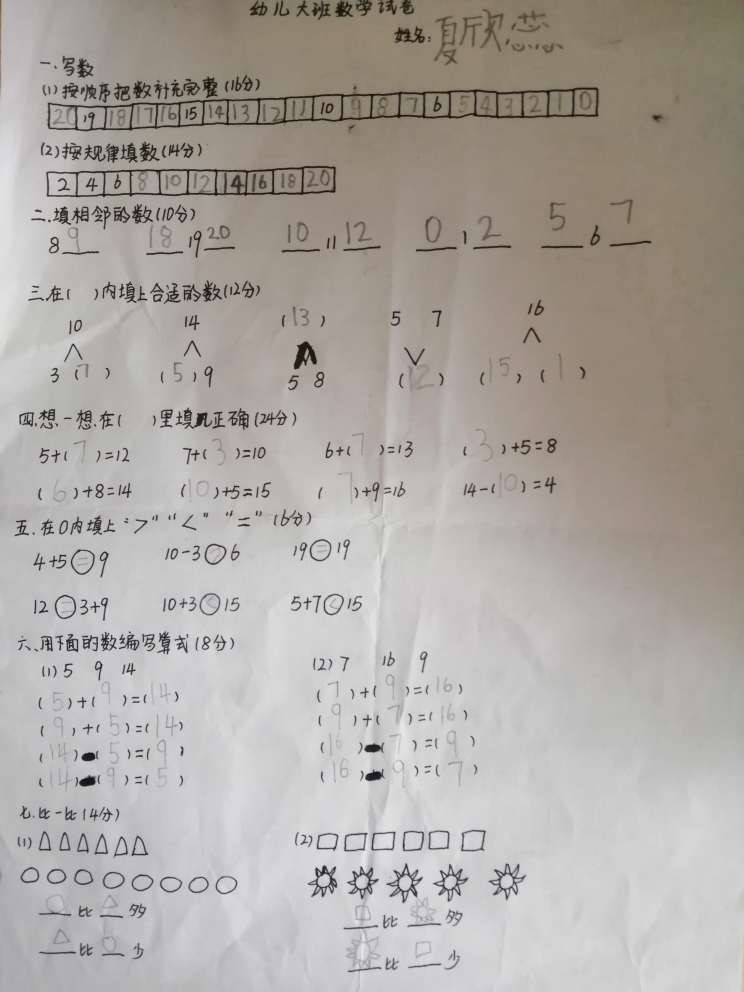 幼儿大班数学试卷
姓名:夏欣蕊
一.写数
(1)按顺序把数补充完整(16分)
20 19 18 17 16 15 14 13 12 11 10 9 8 7 6 5 4 3 2 1 0
(2)按规律填数(14分)
2 4 6 8 10 12 14 16 18 20
二.填相邻的数(10分)
8 9 18 19 20 10 11 12 0 1 2 5 6 7
三.在( )内填上合适的数(12分)
10 14 (13) 5 7 16
3 (7) (5) 9 5 8 (12) (15) (1)
四.想一想.在( )里填 正确(24分)
5+(7)=12 7+(3)=10 6+(7)=13 (3)+5=8
(6)+8=14 (10)+5=15 (7)+9=16 14-(10)=4
五.在O内填上">" "<" "="(6分)
4+5=9 10-3>6 19=19
12=3+9 10+3<15 5+7<15
六.用下面的数编写算式(8分)
(1) 5 9 14 (2) 7 16 9
(5)+(9)=(14) (7)+(9)=(16)
(9)+(5)=(14) (9)+(7)=(16)
(14)-(5)=(9) (16)-(7)=(9)
(14)-(9)=(5) (16)-(9)=(7)
七.比一比(4分)
(1) (2)
比 多 比 多
比 少 比 少